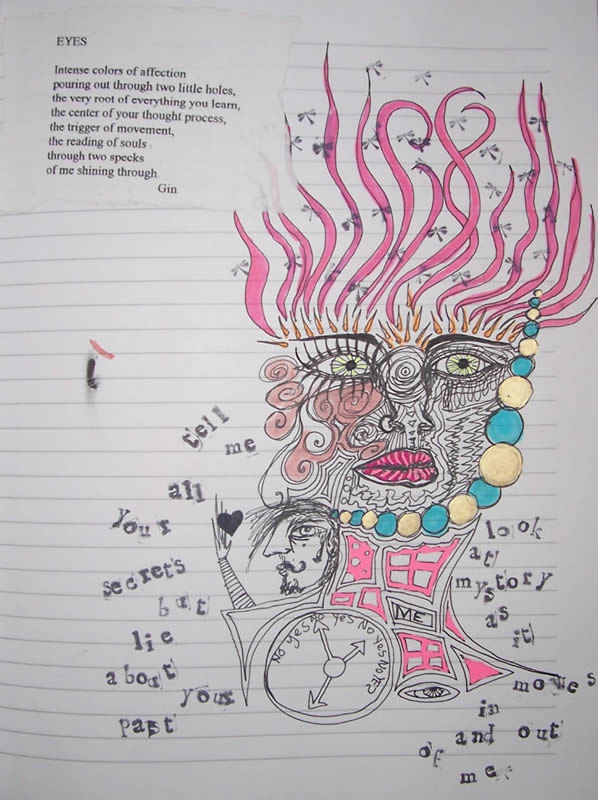 EYES
Intense colors of affection
pouring out through two little holes,
the very root of everything you learn,
the center of your thought process,
the trigger of movement,
the reading of souls
through two specks
of me shining through.
Gin
tell
me
all
your
secrets
but
lie
about
your
past
NO YES NO YES NO YES NO YES
ME
look
at
mystory
as
it
moves
in
and out
of
me